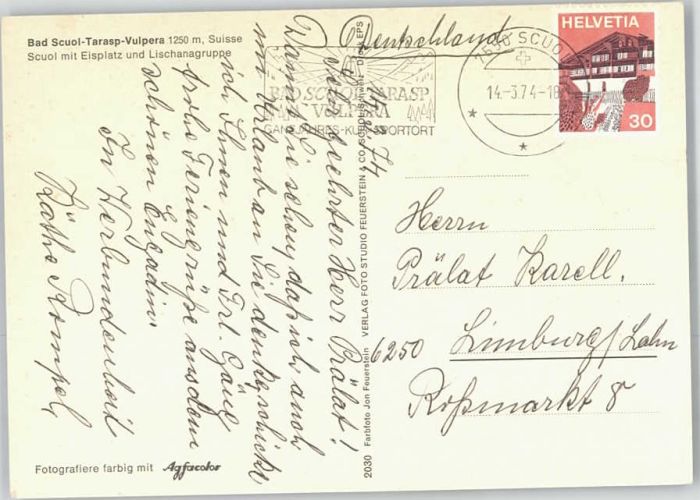 Bad Scuol-Tarasp-Vulpera 1250 m, Suisse
Scuol mit Eisplatz und Lischanagruppe
Deutschland
HELVETIA
30
7550 SCUOL
14.-3.74-18
BAD SCUOL TARASP
VULPERA
GANZJAHRES-KUR-SPORTORT
74
Sehr geehrter Herr Prälat!
Damit Sie sehen, daß ich auch
im Urlaub an Sie denke, schicke
ich Ihnen und Frl. Gäng
frohe Feriengrüße aus dem
schönen Engadin.
In Verbundenheit
Käthe Rompel
Herrn
Prälat Karell.
6250 Limburg/Lahn
Roßmarkt 8
2030 Farbfoto Jon Feuerstein
VERLAG FOTO STUDIO FEUERSTEIN & CO. SCUOL
EPS
Fotografiere farbig mit Agfacolor